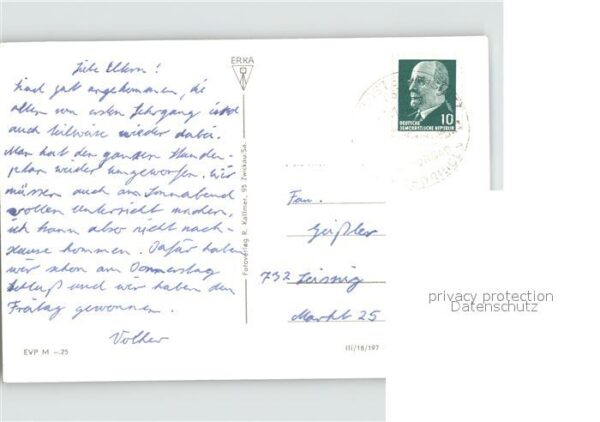 Liebe Eltern!
Sind gut angekommen, die
alten vom ersten Lehrgang sind
auch teilweise wieder dabei.
Man hat den ganzen Stunden-
plan wieder umgeworfen. Wir
müssen auch am Sonnabend
vollen Unterricht machen,
ich kann also nicht nach-
hause kommen. Dafür haben
wir schon am Donnerstag
Schluß und wir haben den
Freitag gewonnen.
Volker
EVP M –.25
ERKA
Fotoverlag R. Kallmer, 95 Zwickau/Sa.
10
DEUTSCHE
DEMOKRATISCHE REPUBLIK
Fam.
Geißler
732 Leisnig
Markt 25
III/18/197
privacy protection
Datenschutz